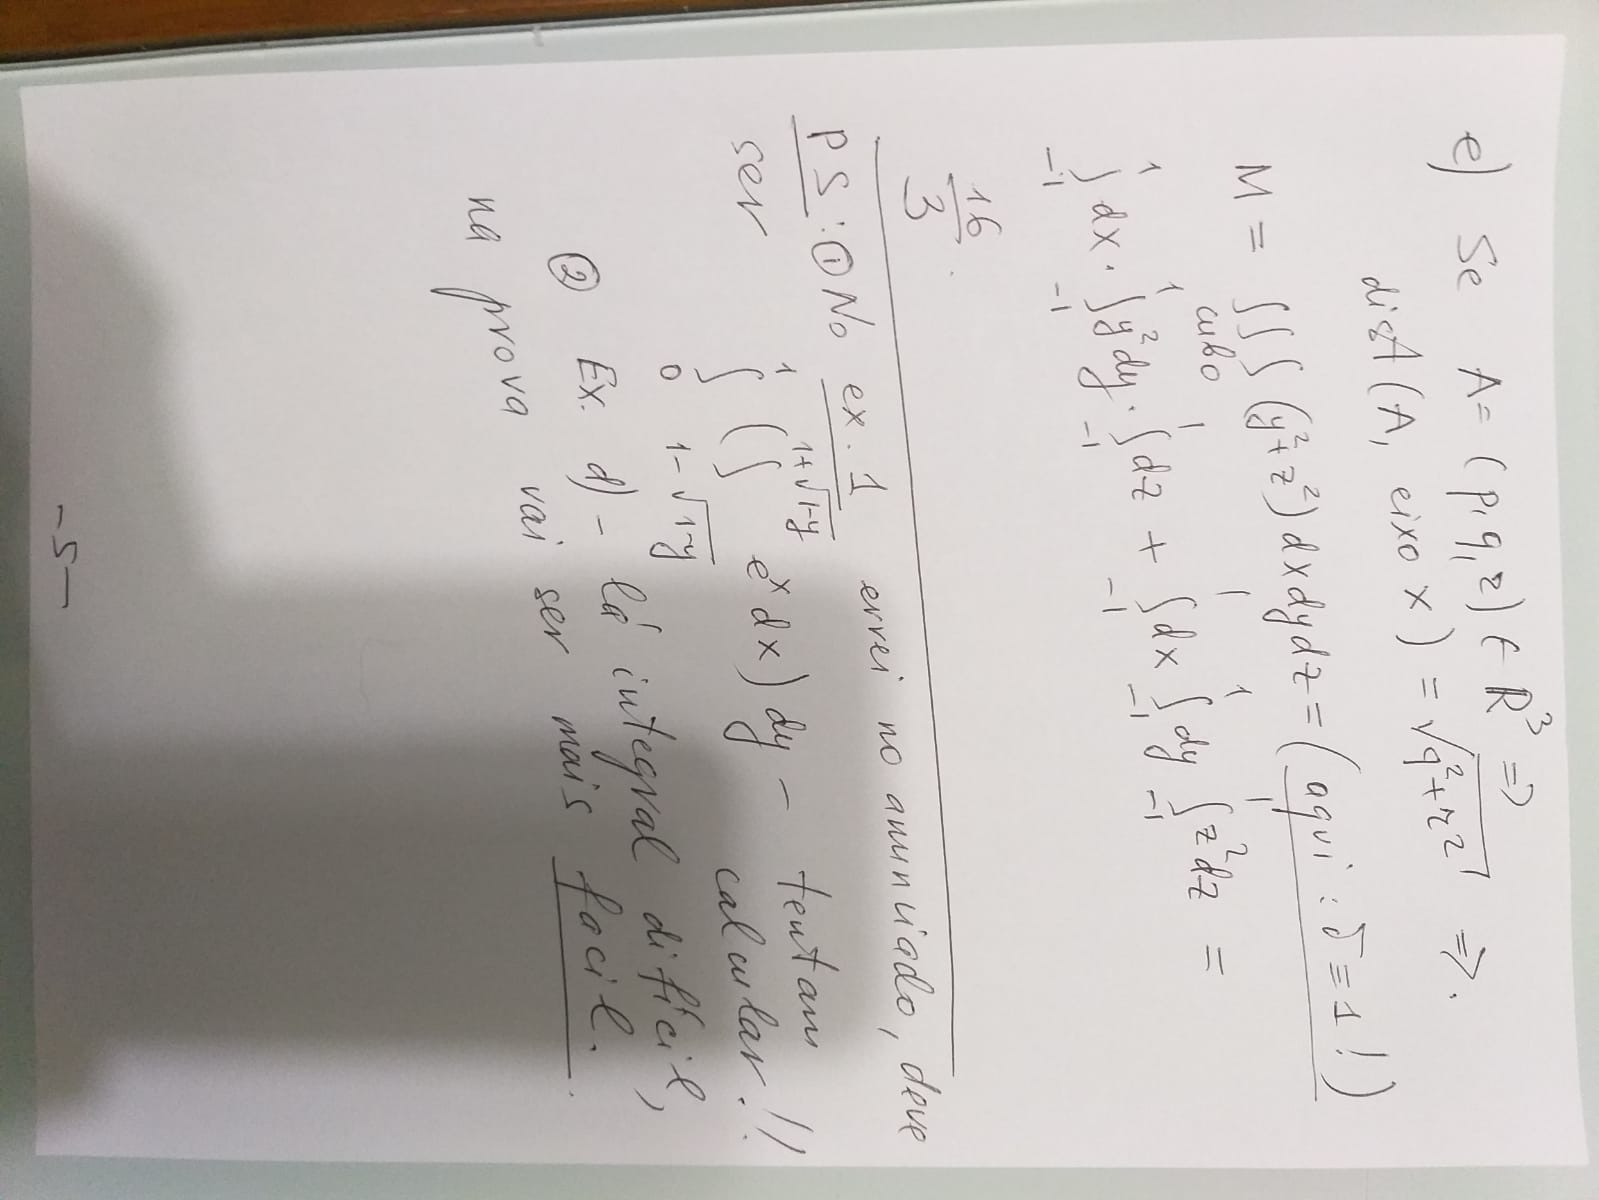 e) Se A = (p, q, z) ∈ R³ ⇒
dist (A, eixo x) = √(q²+r²) ⇒.
M = ∫∫∫_cubo (y²+z²) dxdydz = (aqui: δ=1!)
∫_{-1}^{1} dx · ∫_{-1}^{1} y² dy · ∫_{-1}^{1} dz + ∫_{-1}^{1} dx ∫_{-1}^{1} dy ∫_{-1}^{1} z² dz =
16/3.
PS: ① No ex. 1 errei no annuiado, deve
ser ∫_0^1 ( ∫_{1-√(1-y)}^{1+√(1-y)} e^x dx) dy – tentam
calcular!!
② Ex. d) – lá integral difícil,
na prova vai ser mais facil.
–5–